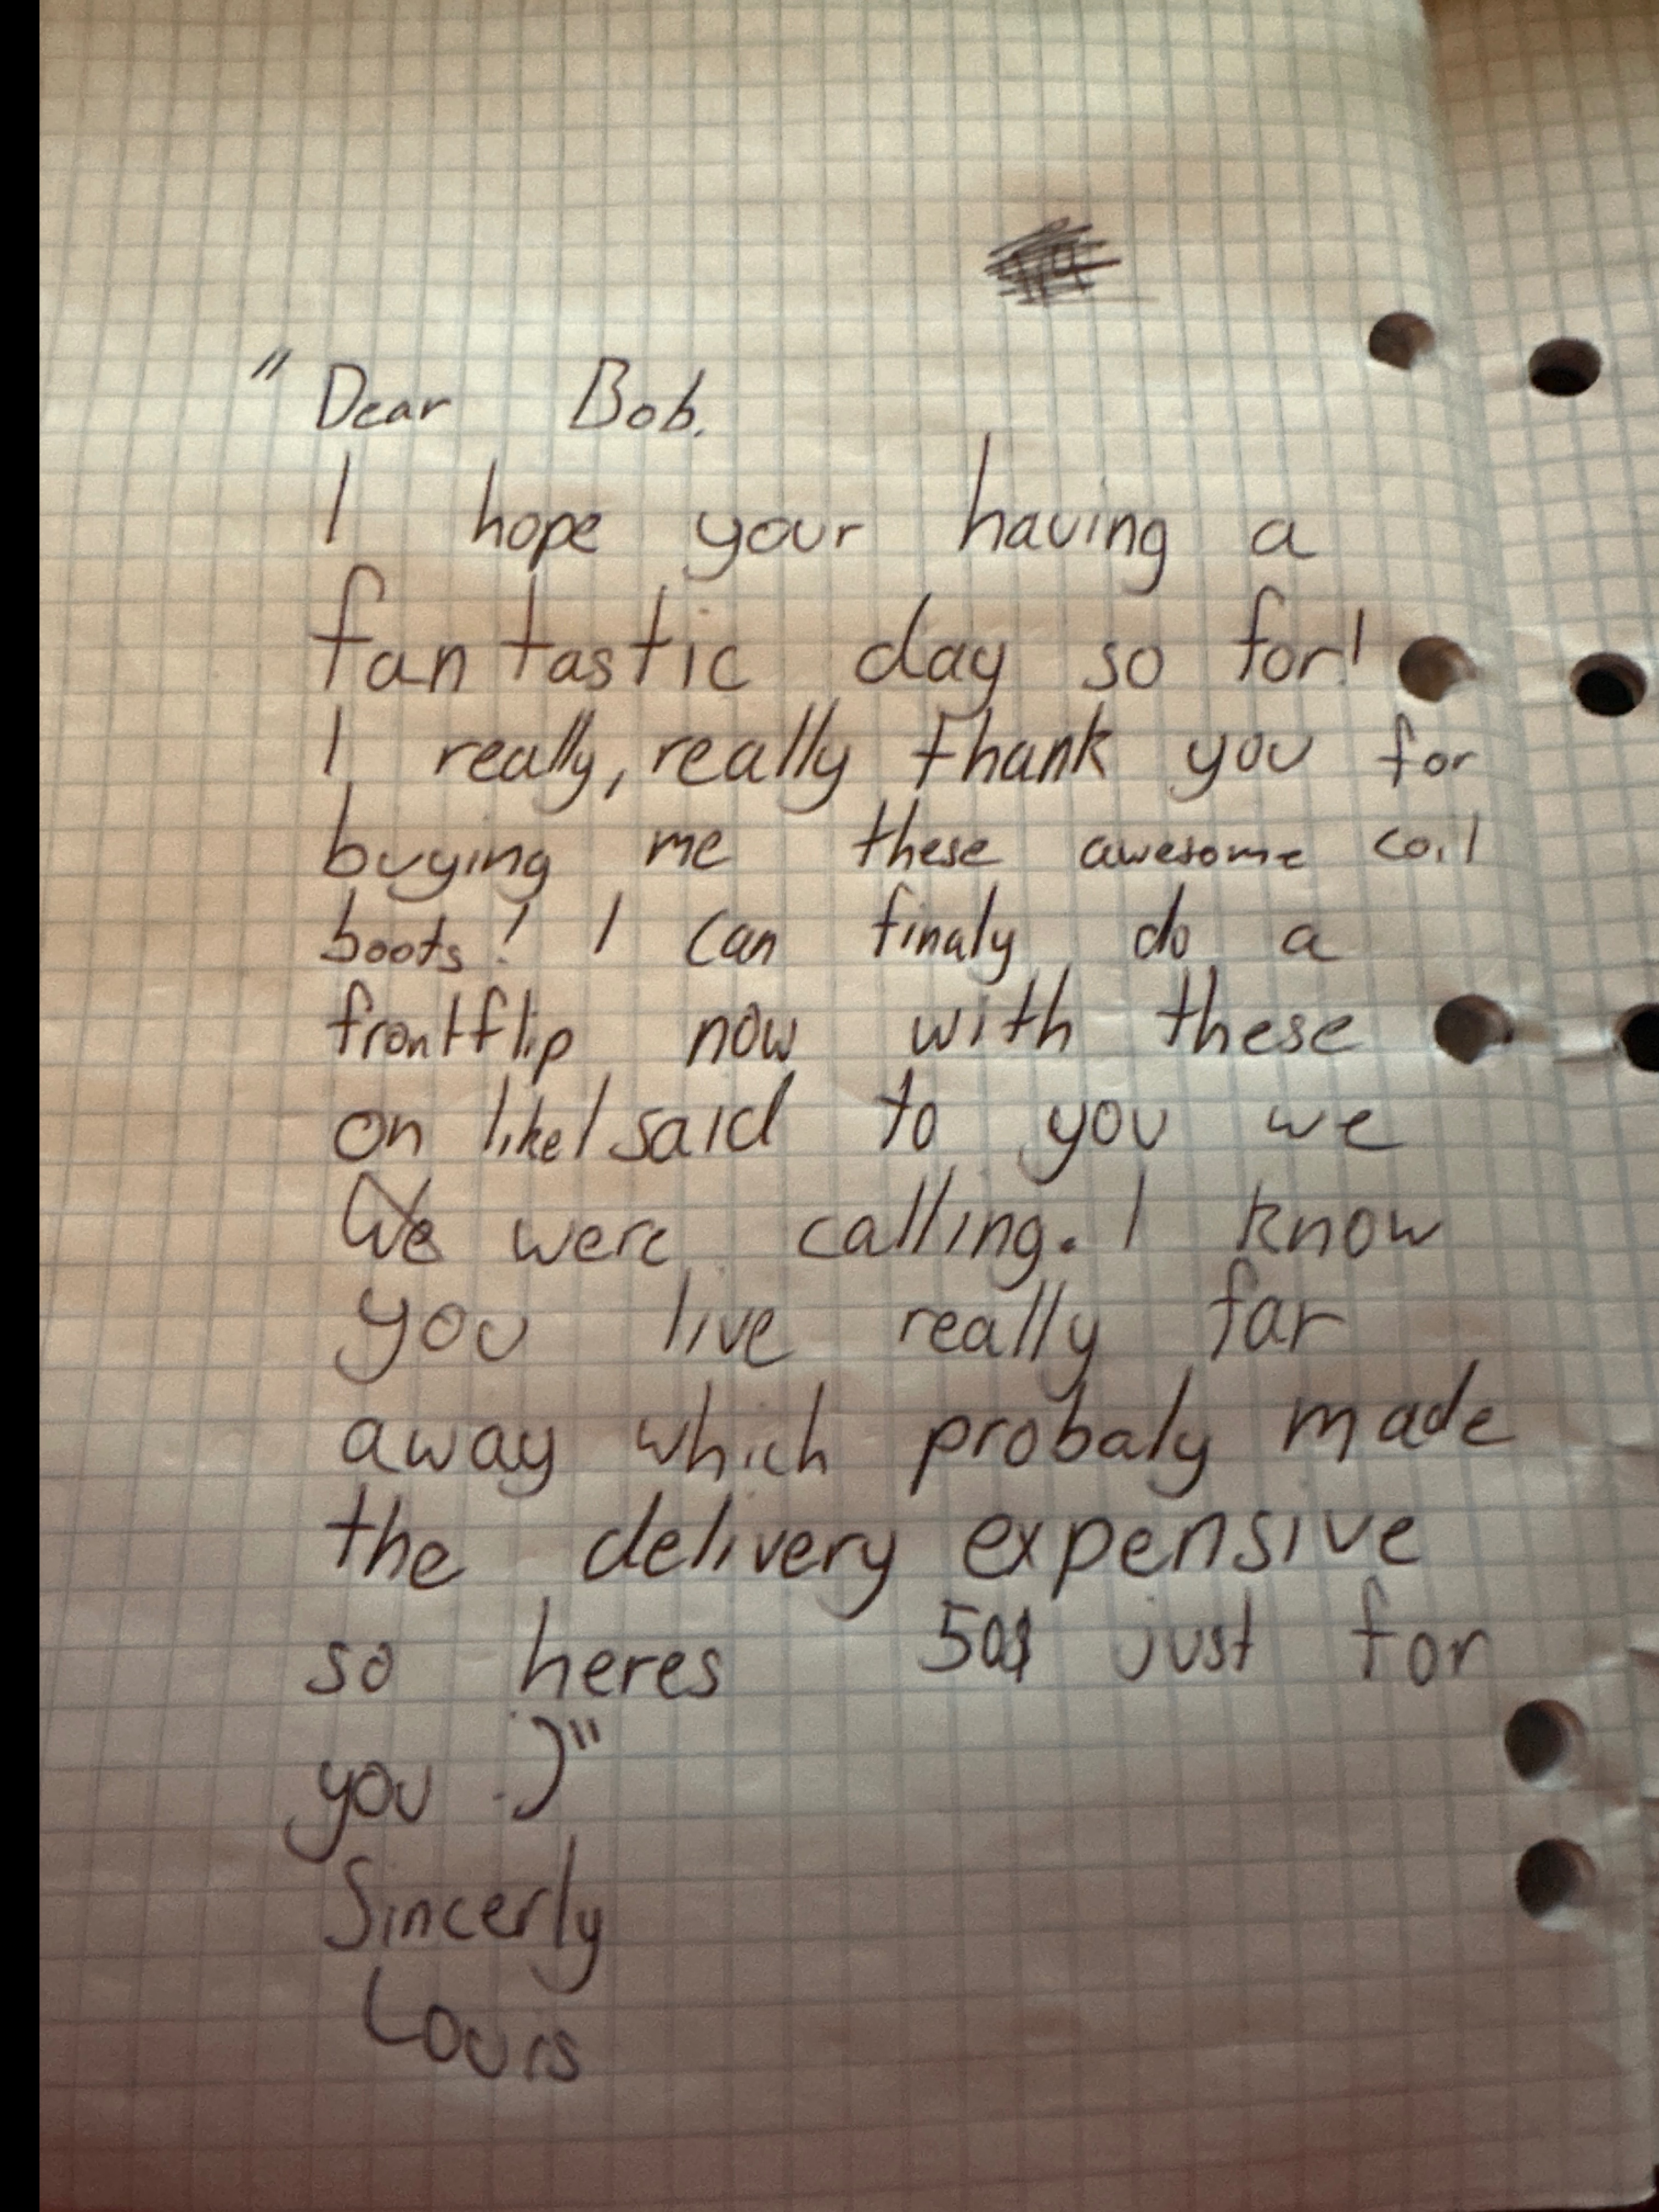 "Dear Bob.
I hope your having a
fantastic day so for!
I really, really thank you for
buying me these awesome coil
boots! I can finaly do a
frontflip now with these
on like I said to you we
We were calling. I know
you live really far
away which probaly made
the delivery expensive
so heres 50$ just for
you :)"
Sincerly
Louis